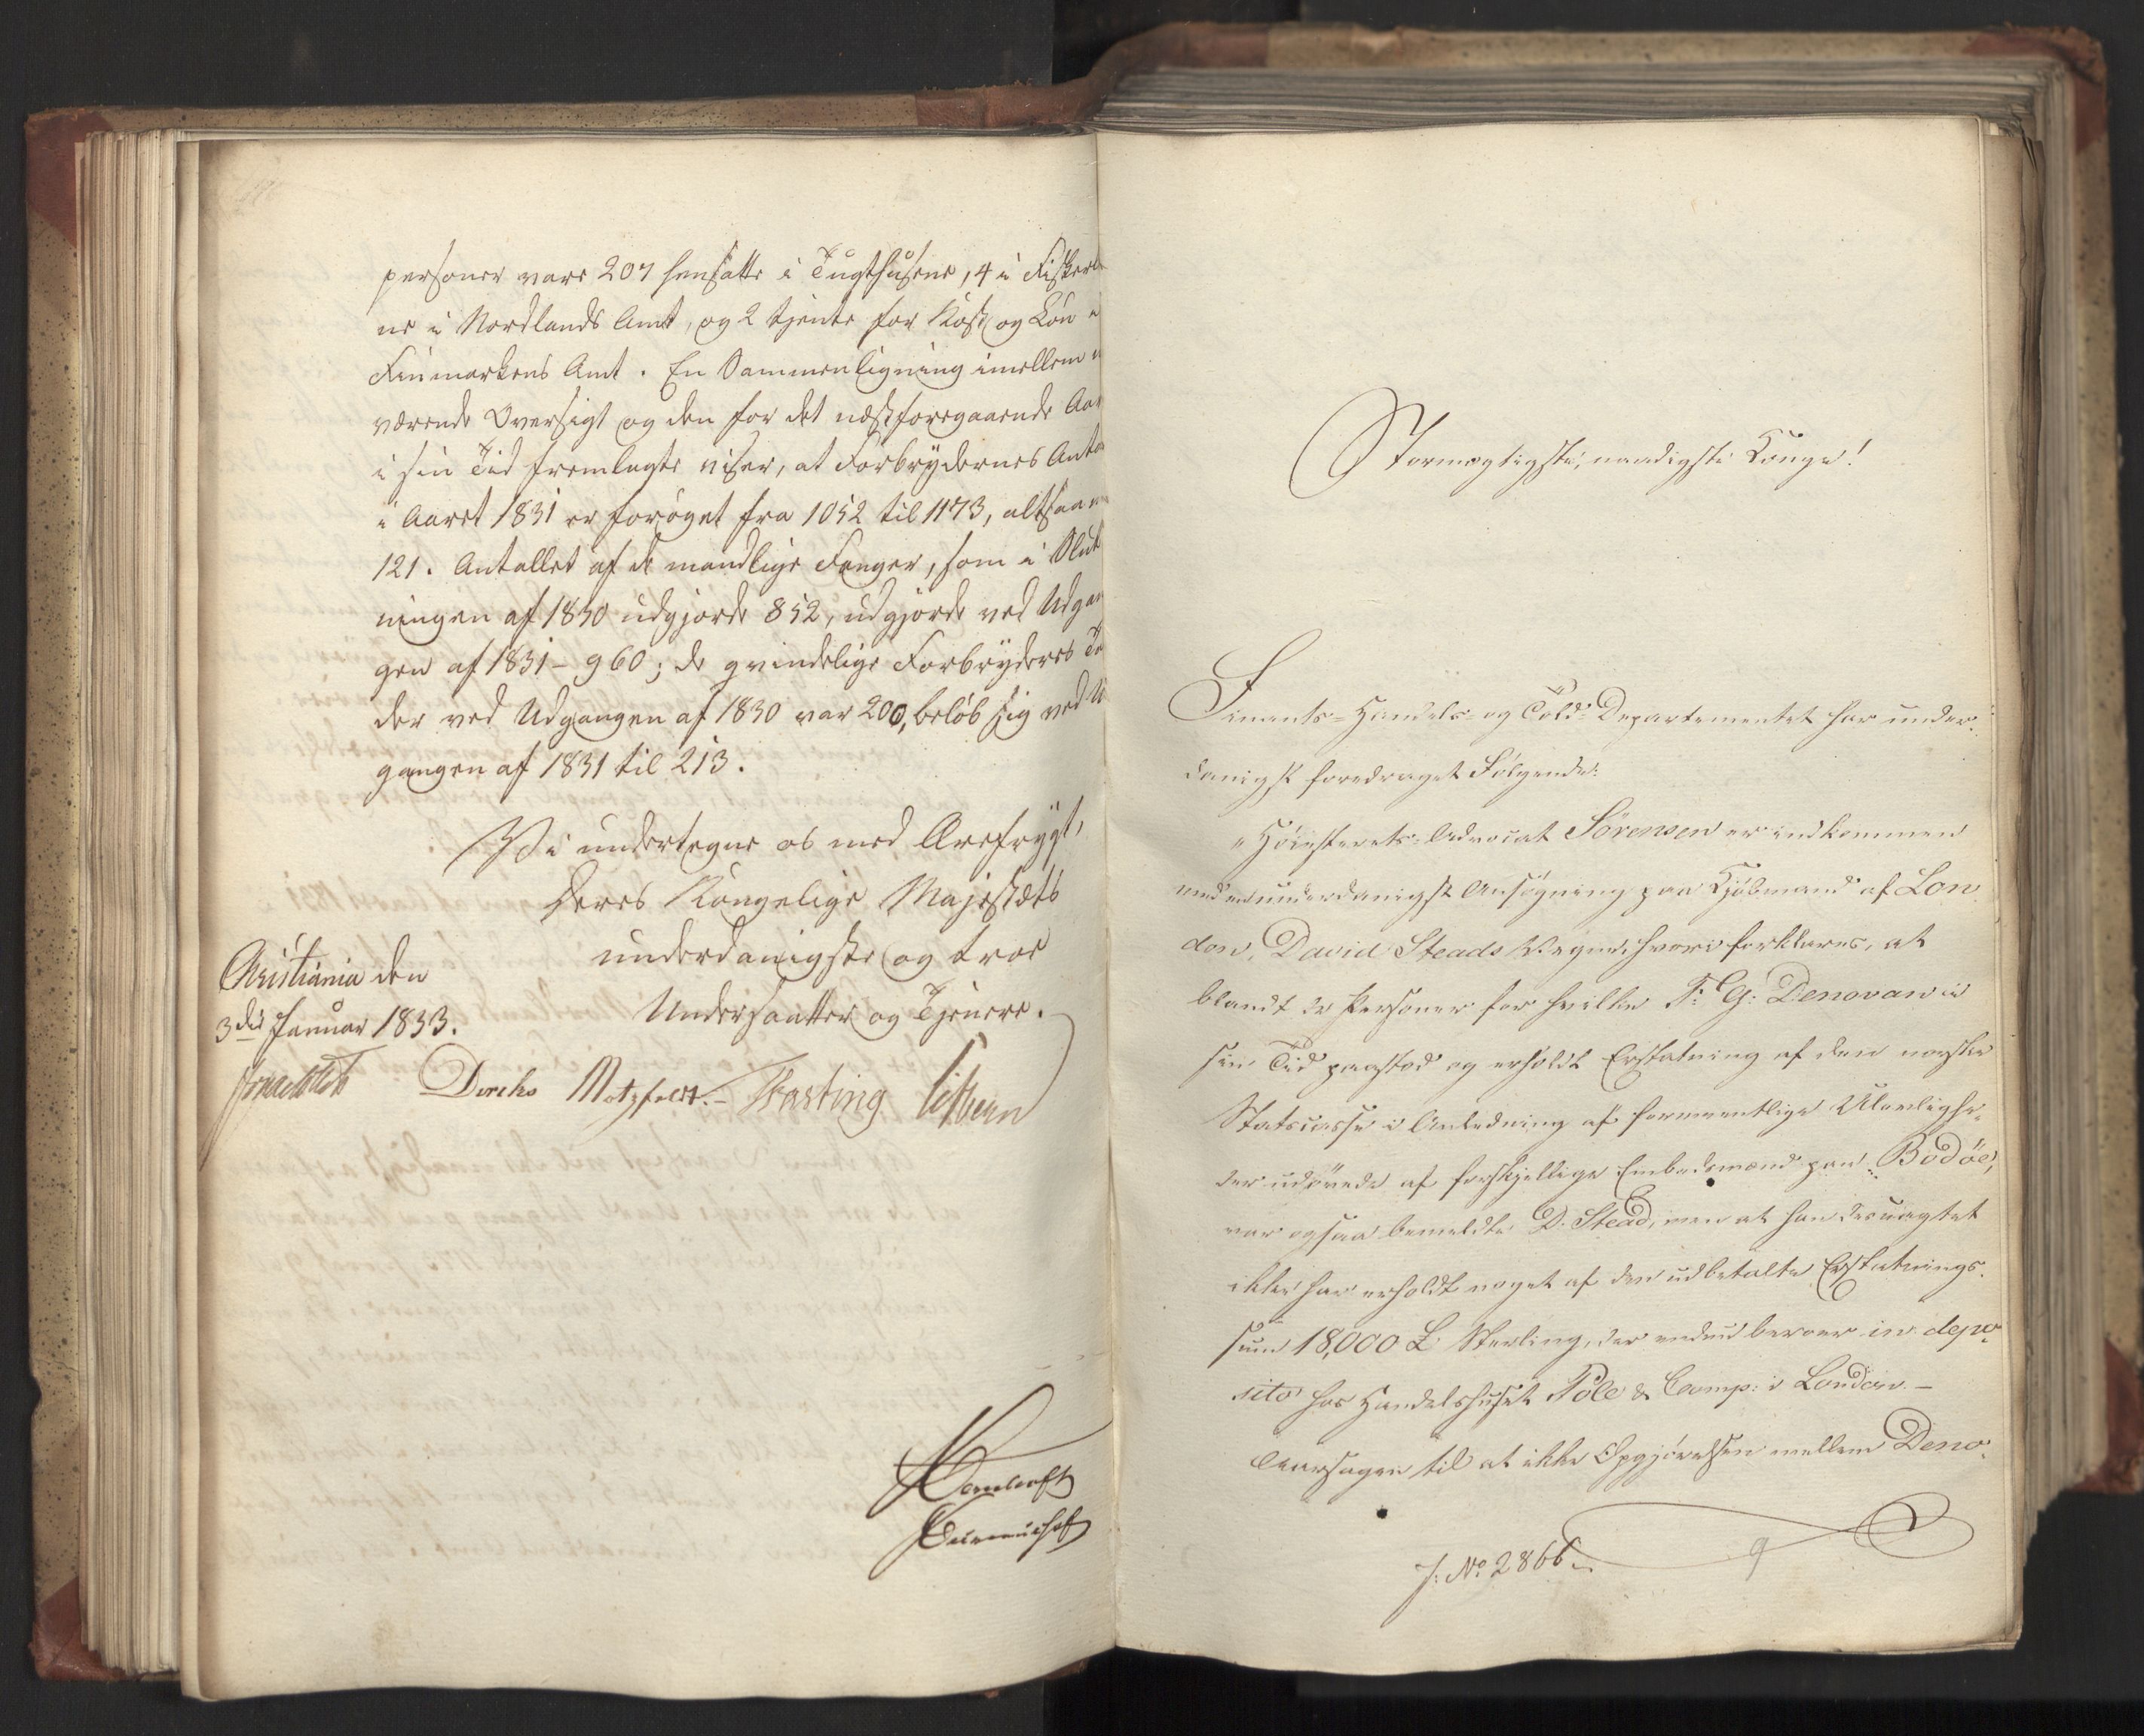 personer vare 207 hensatte i Tugthusene, 4 i Fiskeri
ne i Nordlands Amt, og 2 tjente for Kost og Løn i
Finmarkens Amt. En Sammenligning imellem n
værende Oversigt og den for det næstforegaaende Aar
i sin Tid fremlagte viser, at Forbrydernes Anta
i Aaret 1831 er forøget fra 1052 til 1173, altsaa m
121. Antallet af de mandlige Fanger, som i Slut
ningen af 1830 udgjorde 852, udgjorde ved Udgan
gen af 1831 - 960; de qvindelige Forbryderes Ta
der ved Udgangen af 1830 var 200, beløb sig ved U
gangen af 1831 til 213.
Vi undertegne os med Ærefrygt,
Deres Kongelige Majestæts
underdanigste og troe
Undersaatter og Tjenere.
Christiania den
3die Januar 1833.
Diriks Motzfeldt. Fasting
Stormægtigste, naadigste Konge!
Finants- Handels- og Told-Departementet har under-
danigst foredraget Følgende:
"Høiesterets-Advocat Sörensen er indkommen
med en underdanigst Ansøgning paa Kjøbmand af Lon
don, David Steads Vegne, hvori forklares, at
blandt de Personer for hvilke F: G: Denovan i
sin Tid paastod og erholdt Erstatning af den norske
Statscasse i Anledning af formeentlige Ulovlighe-
der udøvede af forskjellige Embedsmænd paa Bodöe,
var ogsaa bemeldte D. Stead, men at han desuagtet
ikke har erholdt noget af den udbetalte Erstatnings-
sum 18,000 £ Sterling, der endnu beroer in depo-
sito hos Handelshuset Pole & Comp: i London. -
Aarsagen til at ikke Opgjørelsen mellem Deno-
J: No 2866.
9